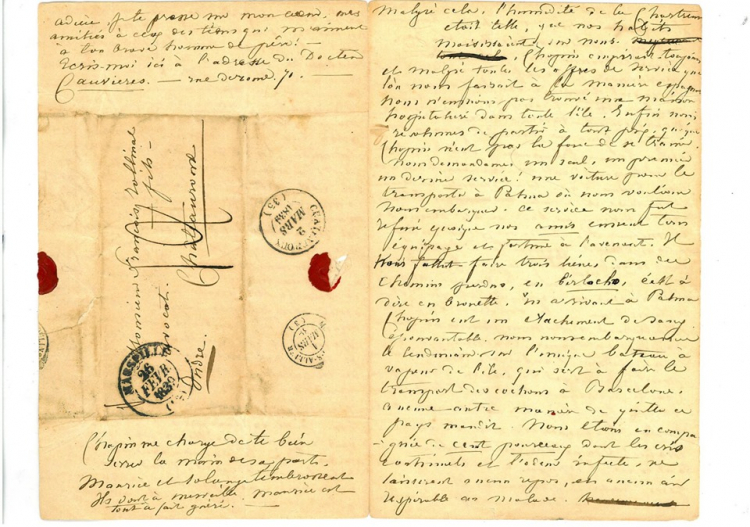 adieu, je te presse sur mon cœur, mes
amitiés à ceux des tiens qui m'aiment
à ton brave homme de père.
Ecris-moi ici à l'adresse du Docteur
Cauvières. — rue de rome, 71.
Monsieur François Rollinat
fils
avocat.
Chateauroux
Indre.
CHATEAUROUX
2
MARS
1839
(35)
MARSEILLE
26
FEVR.
1839
1
MARS
Chopin me charge de te bien
serrer la main de sa part.
Maurice et Solange t'embrassent
Ils vont à merveille. Maurice est
tout à fait guéri.
Malgré cela, l'humidité de la Chartreuse
était telle, que nos habits
moisissaient sur nous.
Chopin empirait toujours
et malgré toutes les offres de service que
l'on nous faisait à la manière espagnole
nous n'eussions pas trouvé une maison
hospitalière dans toute l'île. Enfin nous
résolumes de partir à tout prix, quoique
Chopin n'eut pas la force de se traîner.
nous demandames un seul, un premier
un dernier service! une voiture pour le
transporter à Palma où nous voulions
nous embarquer. ce service nous fut
refusé quoique nos amis eussent tous
équipage et fortune à l'avenant. Il
nous fallut faire trois lieues dans des
chemins perdus, en birlocho, c'est à
dire en brouette. En arrivant à Palma
Chopin eut un crachement de sang
épouvantable. nous nous embarquâmes
le lendemain sur l'unique bateau à
vapeur de l'île, qui sert à faire le
transport des cochons à Barcelone.
aucune autre manière de quitter ce
pays maudit. Nous étions en compa-
-gnie de cent pourceaux dont les cris
continuels et l'odeur infecte, ne
laissèrent aucun repos, et aucun air
respirable au malade.